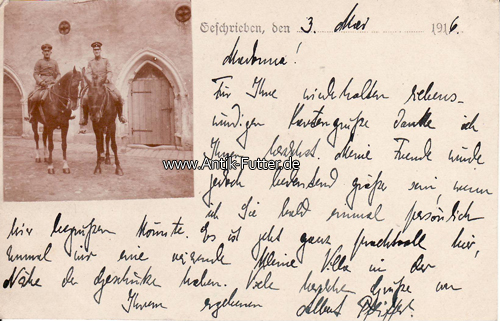 Geschrieben, den 3. Mai 1916.
Madonna!
Für Ihre wiederholten
Kartengrüße danke ich
Ihnen herzlichst. Meine Freude würde
jedoch bedeutend größer sein, wenn
ich Sie bald einmal persönlich
hier begrüßen könnte. Es ist jetzt ganz prachtvoll hier,
wir eine reizende kleine Villa in der
Nähe der Geschütze haben. Viele herzliche Grüße von
Ihrem ergebenen Albert
www.Antik-Futter.de